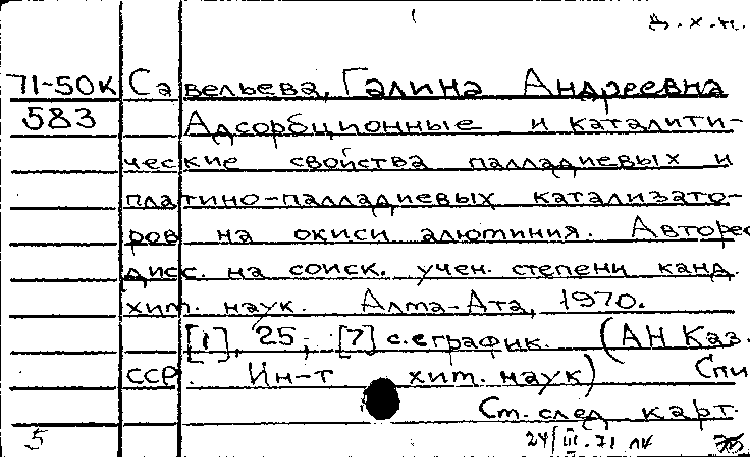 д.х.н.
71-50к Савельева, Галина Андреевна
583 Адсорбционные и каталити-
ческие свойства палладиевых и
платино-палладиевых катализато-
ров на окиси алюминия. Авторе
дисс. на соиск. учен. степени канд.
хим. наук. Алма-Ата, 1970.
[1], 25, [7] с. с график. (АН Каз.
ССР. Ин-т хим. наук) Спи
См. след карт.
5 24/III.71 лк